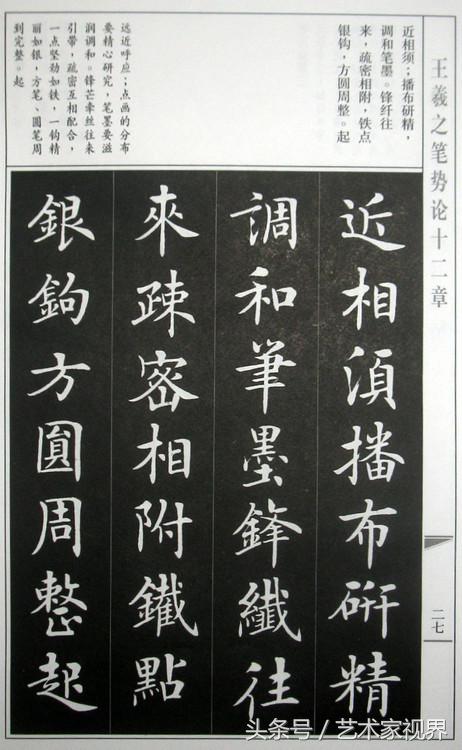 王羲之笔势论十二章
近相须；播布研精，
调和笔墨。锋纤往
来，疏密相附，铁点
银钩，方圆周整。起
远近呼应；点画的分布
要精心研究，笔墨要滋
润调和。锋芒牵丝往来
引带，疏密互相配合，
一点坚劲如铁，一钩精
丽如银，方笔、圆笔周
到完整。起
近相須播布研精
調和筆墨鋒纖往
來疎密相附鐵點
銀鉤方圓周整起
二七
头条号/艺术家视界